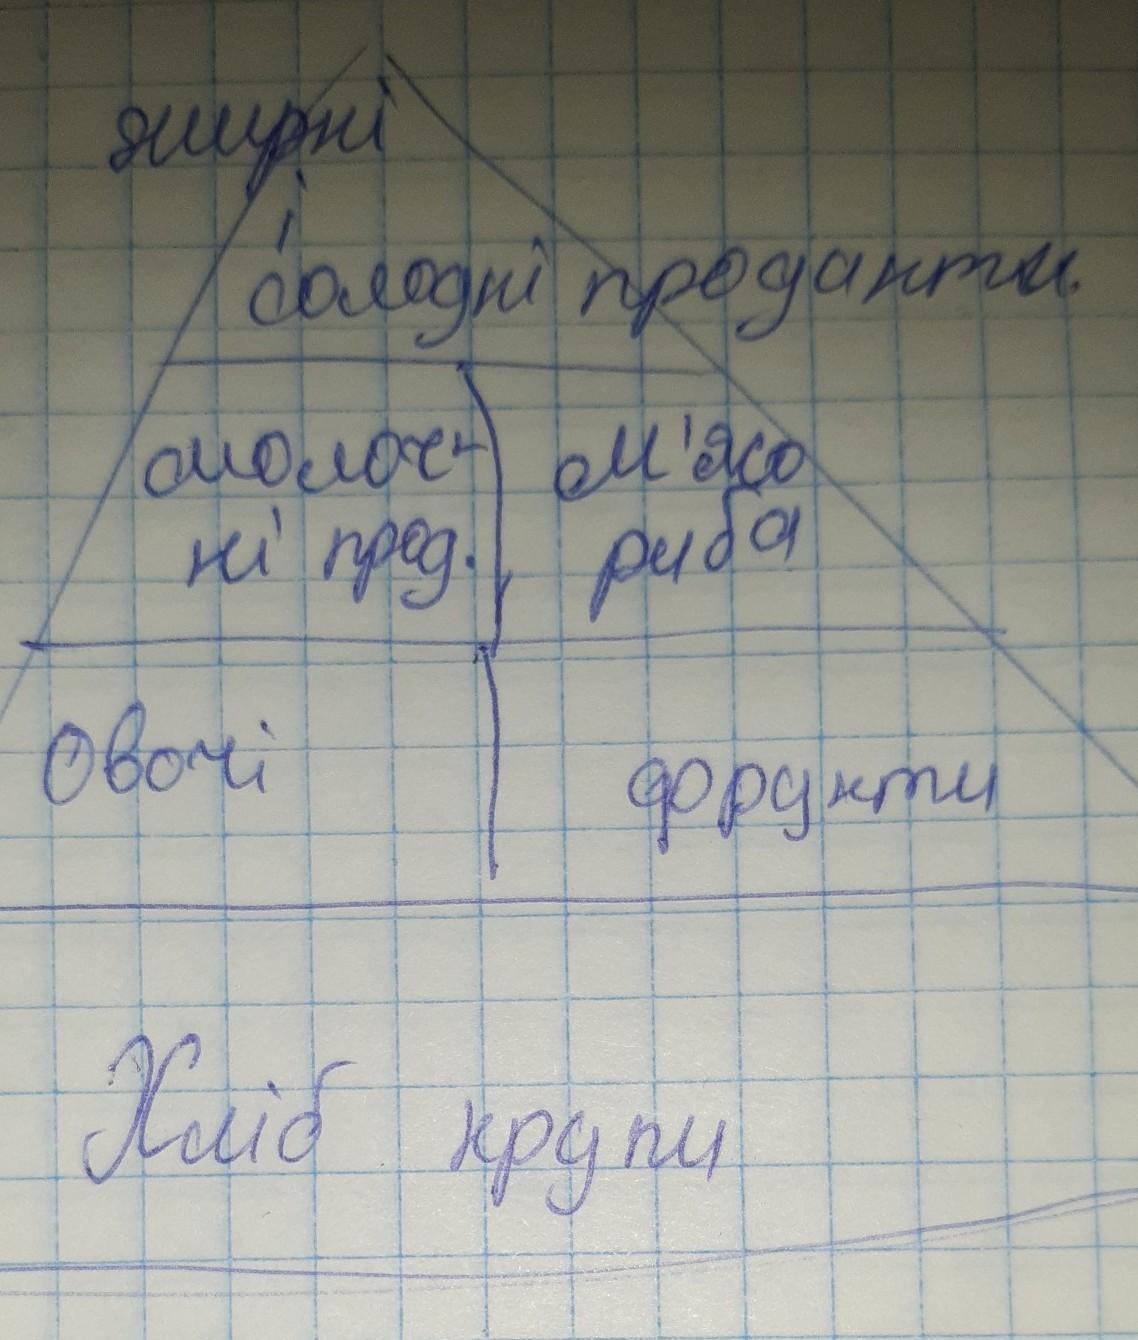 жирні
і
солодкі продукти.
молоч-
ні прод.
м'ясо
риба
Овочі
фрукти
Хліб крупи